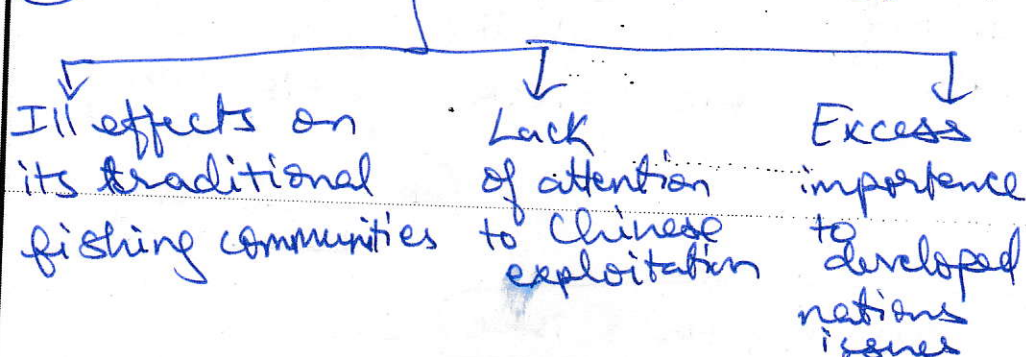 Ill effects on
its traditional
fishing communities
Lack
of attention
to Chinese
exploitation
Excess
importence
to
developed
nations
issues